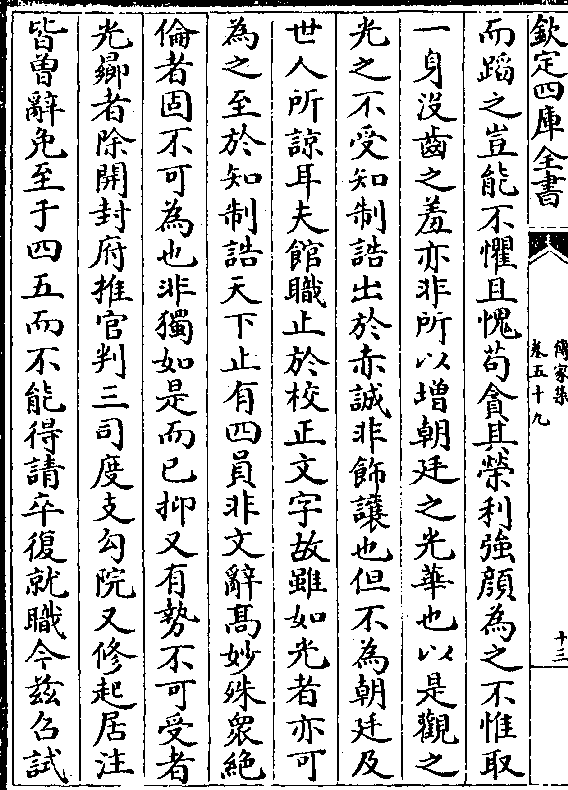 欽定四庫全書
傳家集
卷五十九
十三
而蹈之豈能不懼且愧苟貪其榮利強顔為之不惟取
一身沒齒之羞亦非所以增朝廷之光華也以是觀之
光之不受知制誥出於赤誠非飾讓也但不為朝廷及
世人所諒耳夫館職止於校正文字故雖如光者亦可
為之至於知制誥天下止有四員非文辭髙妙殊衆絶
倫者固不可為也非獨如是而已抑又有勢不可受者
光曏者除開封府推官判三司度支勾院又修起居注
皆曽辭免至于四五而不能得請卒復就職今兹召試